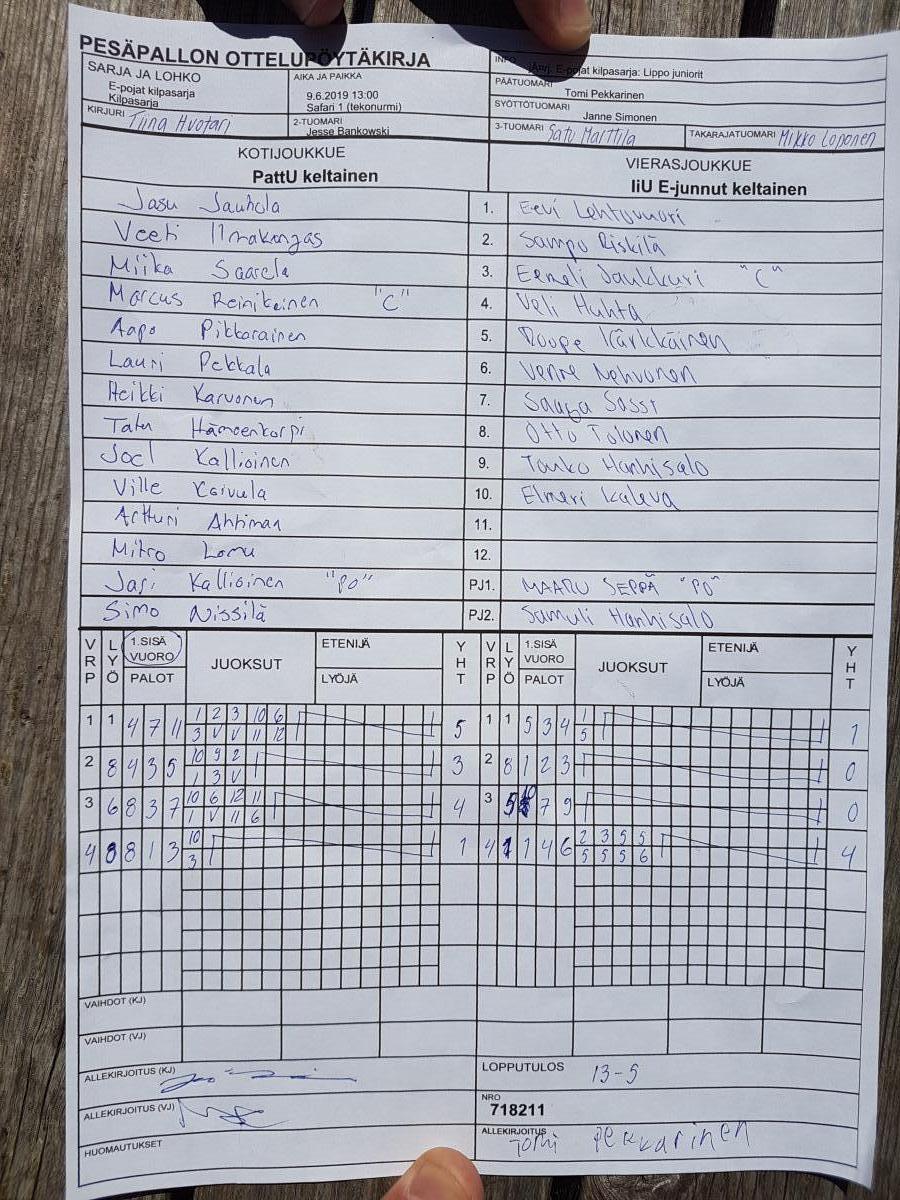 PESÄPALLON OTTELUPÖYTÄKIRJA
SARJA JA LOHKO
E-pojat kilpasarja
Kilpasarja
AIKA JA PAIKKA
9.6.2019 13:00
Safari 1 (tekonurmi)
KIRJURI Tiina Huotari
2-TUOMARI
Jesse Bankowski
E-pojat kilpasarja: Lippo juniorit
PÄÄTUOMARI
Tomi Pekkarinen
SYÖTTÖTUOMARI
Janne Simonen
3-TUOMARI Satu Marttila
TAKARAJATUOMARI Mikko Loponen
KOTIJOUKKUE
PattU keltainen
VIERASJOUKKUE
IiU E-junnut keltainen
Jasu Jauhola 1. Eevi Lehtovuori
Veeti Ilmakangas 2. Sampo Riskilä
Miika Saarela 3. Eemeli Jaukkuri "C"
Marcus Reinikainen "C" 4. Veli Huhta
Aapo Pikkarainen 5. Roope Kärkkäinen
Lauri Pekkala 6. Venre Nehvonen
Heikki Karvonen 7. Saaga Sassi
Tatu Hämeenkorpi 8. Otto Tolonen
Joel Kallioinen 9. Touko Hanhisalo
Ville Koivula 10. Elmeri Kaleva
Artturi Ahtiman 11.
Mitro Lomu 12.
Jasi Kallioinen "PO" PJ1. MAARU SEPPÄ "PO"
Simo Nissilä PJ2. Samuli Hanhisalo
VRP LYÖ 1.SISÄ VUORO PALOT JUOKSUT ETENIJÄ LYÖJÄ YHT VRP LYÖ 1.SISÄ VUORO PALOT JUOKSUT ETENIJÄ LYÖJÄ YHT
1 1 4 7 11 1 2 3 10 6 5 1 1 5 3 4 1 1
3 V V 11 12 5
2 8 4 3 5 10 9 2 3 2 8 1 2 3 0
1 3 V
3 6 8 3 7 10 6 12 11 4 3 5 7 9 0
1 V 11 6
4 8 8 1 3 10 1 4 1 1 4 6 2 3 5 5 4
3 5 5 5 6
VAIHDOT (KJ)
VAIHDOT (VJ)
ALLEKIRJOITUS (KJ)
LOPPUTULOS 13-5
ALLEKIRJOITUS (VJ)
NRO
718211
HUOMAUTUKSET
ALLEKIRJOITUS
Tomi Pekkarinen